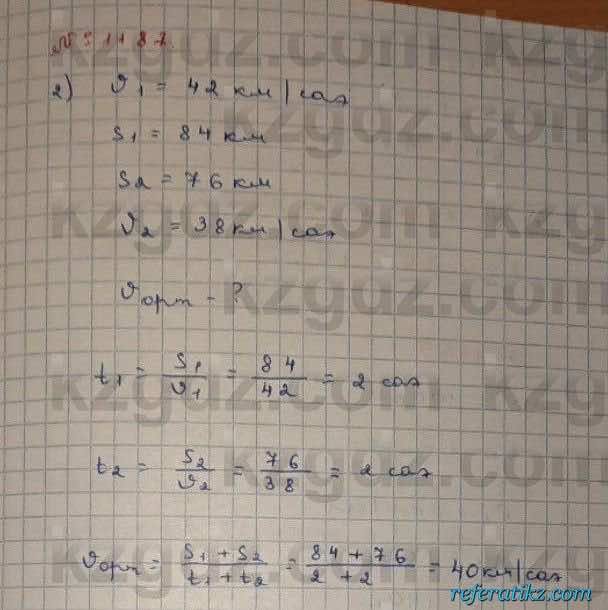 № 1187.
2) ϑ₁ = 42 км/сағ
S₁ = 84 км
S₂ = 76 км
ϑ₂ = 38 км/сағ
ϑорт - ?
t₁ = S₁/ϑ₁ = 84/42 = 2 сағ
t₂ = S₂/ϑ₂ = 76/38 = 2 сағ
ϑорт = (S₁ + S₂)/(t₁ + t₂) = (84 + 76)/(2 + 2) = 40 км/сағ
kzgdz.com
referatikz.com